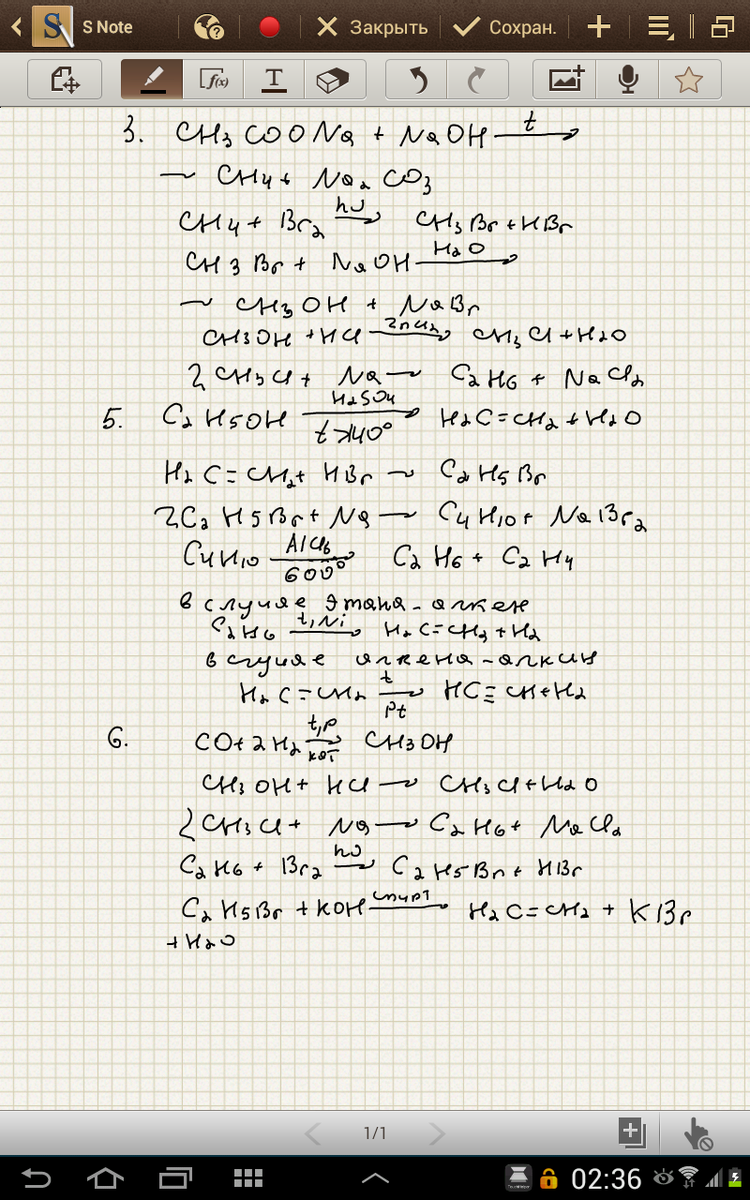 S Note
Закрыть
Сохран.
f(x)
T
3. CH3COONa + NaOH —t→
→ CH4 + Na2CO3
CH4 + Br2 —hυ→ CH3Br + HBr
CH3Br + NaOH —H2O→
→ CH3OH + NaBr
CH3OH + HCl —ZnCl2→ CH3Cl + H2O
2CH3Cl + Na → C2H6 + NaCl2
5. C2H5OH —H2SO4, t>140°→ H2C=CH2 + H2O
H2C=CH2 + HBr → C2H5Br
2C2H5Br + Na → C4H10 + NaBr2
C4H10 —AlCl3, 600°→ C2H6 + C2H4
в случае этана-алкен
C2H6 —t, Ni→ H2C=CH2 + H2
в случае алкена-алкин
H2C=CH2 —t, Pt→ HC≡CH + H2
6. CO + 2H2 —t,p, кат→ CH3OH
CH3OH + HCl → CH3Cl + H2O
2CH3Cl + Na → C2H6 + NaCl2
C2H6 + Br2 —hυ→ C2H5Br + HBr
C2H5Br + KOH —спирт→ H2C=CH2 + KBr
+ H2O
1/1
02:36